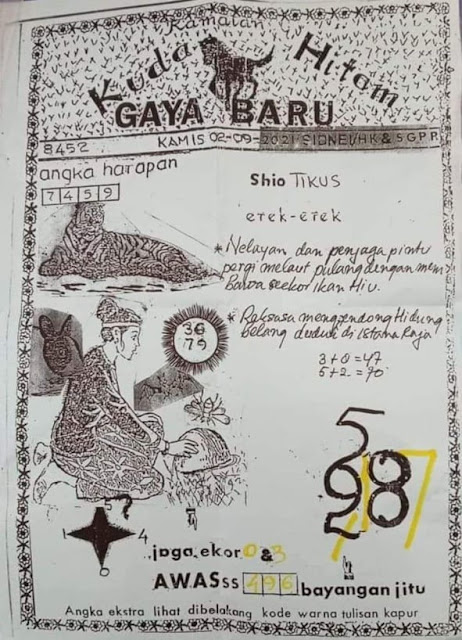 Ramalan
Kuda Hitam
GAYA BARU
8452 KAMIS 02-09-2021 SIDNEY/HK & SGPR
angka harapan
7 4 5 9
Shio TIKUS
erek-erek
* Nelayan dan penjaga pintu
pergi melaut pulang dengan mem
bawa seekor ikan Hiu.
* Raksasa menggendong Hidung
belang duduk di Istana Raja
3+0=47
5+2=90
36
79
5
98
28
5
1 4
0
jaga ekor 0 & 3
AWASss 496 bayangan jitu
Angka ekstra lihat dibelakang kode warna tulisan kapur